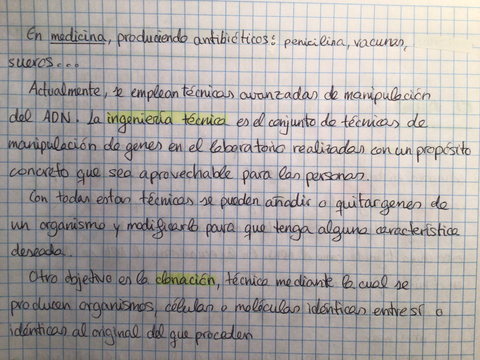 En medicina, produciendo antibióticos: penicilina, vacunas,
sueros...
Actualmente, se emplean técnicas avanzadas de manipulación
del ADN. La ingeniería técnica es el conjunto de técnicas de
manipulación de genes en el laboratorio realizadas con un propósito
concreto que sea aprovechable para las personas.
Con todas estas técnicas se pueden añadir o quitar genes de
un organismo y modificarlo para que tenga alguna característica
deseada.
Otro objetivo es la clonación, técnica mediante la cual se
producen organismos, células o moléculas idénticas entre sí o
idénticas al original del que proceden